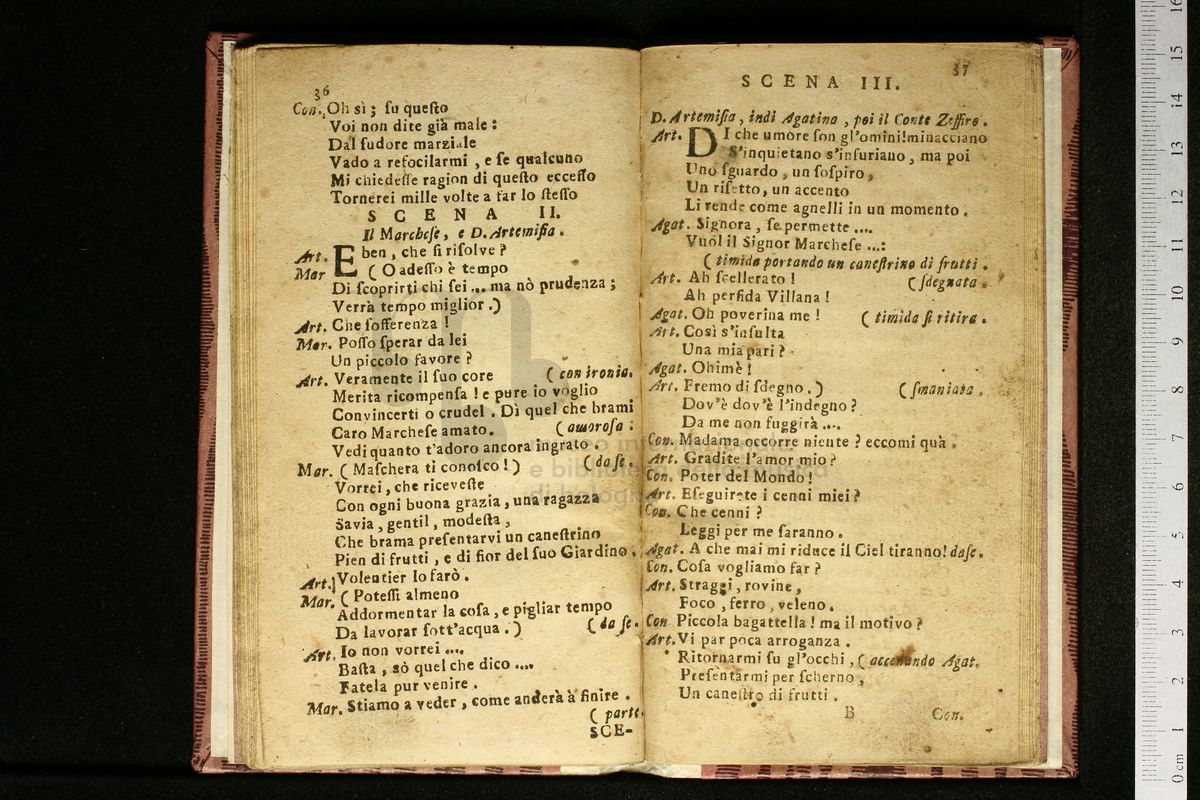 36
Con. Oh sì; su questo
Voi non dite già male:
Dal sudore marziale
Vado a refocilarmi, e se qualcuno
Mi chiedesse ragion di questo eccesso
Tornerei mille volte a far lo stesso
SCENA II.
Il Marchese, e D. Artemisia.
Art. Eben, che si risolve?
Mar (O adesso è tempo
Di scoprirti chi sei ... ma nò prudenza;
Verrà tempo miglior.)
Art. Che sofferenza!
Mar. Posso sperar da lei
Un piccolo favore?
Art. Veramente il suo core (con ironia.
Merita ricompensa! e pure io voglio
Convincerti o crudel. Dì quel che brami
Caro Marchese amato. (amorosa:
Vedi quanto t'adoro ancora ingrato.
Mar. (Maschera ti conosco!) (da se.
Vorrei, che riceveste
Con ogni buona grazia, una ragazza
Savia, gentil, modesta,
Che brama presentarvi un canestrino
Pien di frutti, e di fior del suo Giardino.
Art. Volentier lo farò.
Mar. (Potessi almeno
Addormentar la cosa, e pigliar tempo
Da lavorar sott'acqua.) (da se.
Art. Io non vorrei ....
Basta, sò quel che dico ....
Fatela pur venire.
Mar. Stiamo a veder, come anderà à finire.
(parte.
SCE-
37
SCENA III.
D. Artemisia, indi Agatina, poi il Conte Zeffiro.
Art. DI che umore son gl'omini! minacciano
S'inquietano s'infuriano, ma poi
Uno sguardo, un sospiro,
Un risetto, un accento
Li rende come agnelli in un momento.
Agat. Signora, se permette ....
Vuol il Signor Marchese ...:
(timida portando un canestrino di frutti.
Art. Ah scellerato! (sdegnata.
Ah perfida Villana!
Agat. Oh poverina me! (timida si ritira.
Art. Così s'insulta
Una mia pari?
Agat. Ohimè!
Art. Fremo di sdegno.) (smaniata.
Dov'è dov'è l'indegno?
Da me non fuggirà ....
Con. Madama occorre niente? eccomi quà.
Art. Gradite l'amor mio?
Con. Poter del Mondo!
Art. Eseguirete i cenni miei?
Con. Che cenni?
Leggi per me saranno.
Agat. A che mai mi riduce il Ciel tiranno! da se.
Con. Cosa vogliamo far?
Art. Straggi, rovine,
Foco, ferro, veleno.
Con Piccola bagattella! ma il motivo?
Art. Vi par poca arroganza.
Ritornarmi su gl'occhi, (accenando Agat.
Presentarmi per scherno,
Un canestro di frutti.
B Con.